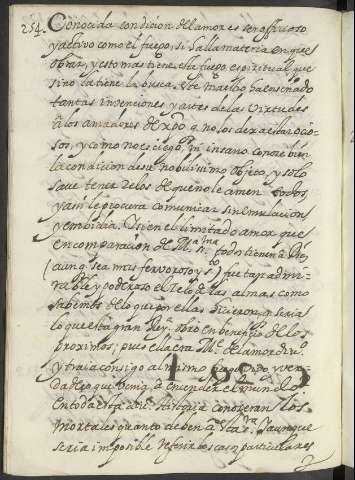 254. Conocida condicion del amor es ser officioso
y activo como el fuego, si halla materia en que
obrar, y esto mas tiene este fuego espiritual que
si no la tiene la busca. Este maestro ha enseñado
tantas invenciones y artes de las Virtudes
a los amadores de Xpto q. no los dexa estar ocio-
sos, y como no es ciego, ni insano conoce bien
la condicion de su nobilissimo objeto, y solo
save tener zelos de que no le amen todos,
y asi le procura comunicar sin emulacion
y embidia. Y si en el limitado amor que
en comparacion de M.ª SS.ma todos tienen a Dios,
(aunq. sea mas fervoroso y s.to) fue tan admi-
rable y poderoso el zelo de las almas como
sabemos de lo que por ellas hicieron, que seria
lo que esta gran Rey.ª obro en beneficio de los
proximos; pues ella era M.e del amor div.º
y traia consigo al mismo fuego vivo, y ver-
dadero que benia a encender el mundo.
En toda esta div.ª Historia conoceran los
mortales quanto deben a esta S.ra y aunque
seria imposible referir los casos particulares
1825